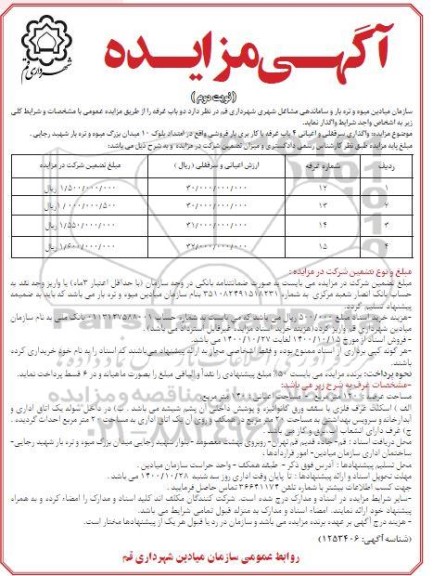 آگهی مزایده
شهرداری قم
(نوبت دوم)
سازمان میادین میوه و تره بار و ساماندهی مشاغل شهری شهرداری قم در نظر دارد دو باب غرفه را از طریق مزایده عمومی با مشخصات و شرایط کلی
زیر به اشخاص واجد شرایط واگذار نماید.
موضوع مزایده: واگذاری سرقفلی و اعیانی ۴ باب غرفه با کاربری بار فروشی واقع در امتداد بلوک ۱۰ میدان بزرگ میوه و تره بار شهید رجایی.
مبلغ پایه مزایده طبق نظر کارشناس رسمی دادگستری و میزان تضمین شرکت در مزایده و به شرح ذیل می باشد:
ردیف شماره غرفه ارزش اعیانی و سرقفلی (ریال) مبلغ تضمین شرکت در مزایده
۱ ۱۲ ۳۰/۰۰۰/۰۰۰/۰۰۰ ۱/۵۰۰/۰۰۰/۰۰۰ ریال
۲ ۱۳ ۳۰/۰۰۰/۰۰۰/۰۰۰ ریال
۳ ۱۴ ۳۱/۰۰۰/۰۰۰/۰۰۰ ۱/۵۵۰/۰۰۰/۰۰۰ ریال
۴ ۱۵ ۳۲/۰۰۰/۰۰۰/۰۰۰ ۱/۶۰۰/۰۰۰/۰۰۰ ریال
مبلغ و نوع تضمین شرکت در مزایده:
مبلغ تضمین شرکت در مزایده می بایست به صورت ضمانتنامه بانکی در وجه سازمان (با حداقل اعتبار ۳ماه) یا واریز وجه نقد به
حساب بانک انصار شعبه مرکزی به شماره بنام سازمان میادین میوه و تره بار می باشد که باید به ضمیمه
پیشنهاد تسلیم گردد.
-هزینه خرید اسناد مبلغ ۵۰۰/۰۰۰ ریال می باشد که می بایست به شماره حساب بانک ملی به نام سازمان
میادین شهرداری قم واریز گردد. هزینه خرید اسناد مزایده غیرقابل استرداد می باشد.
- فروش اسناد از مورخ ۱۴۰۰/۱۰/۱۵ لغایت ۱۴۰۰/۱۰/۲۷ می باشد.
-هر گونه کپی برداری از اسناد ممنوع بوده و فقط اشخاصی مجاز به ارائه پیشنهاد می باشند که اسناد را به نام خود خریداری کرده
باشند.
نحوه پرداخت: برنده مزایده می بایست ۵۰٪ مبلغ پیشنهادی را نقداً و الباقی مبلغ را بصورت ماهیانه و در ۶ قسط پرداخت نماید.
-مشخصات غرف به شرح زیر می باشد:
مساحت عرصه ۱۲۰ متر مربع - مساحت اعیانی متر مربع:
الف) اسکلت غرف فلزی با سقف ورق گالوانیزه و پوشش داخلی آن پشم شیشه می باشد. ب) در داخل سوله یک اتاق اداری و
آبدارخانه و سرویس بهداشتی به مساحت ۲۸ متر مربع در همکف و روی آن یک اتاق اداری به مساحت ۲۰ متر مربع احداث گردیده.
ج) غرف دارای انشعاب آب، برق و گاز می باشد.
محل دریافت اسناد: قم-جاده قدیم قم تهران- روبروی بهشت معصومه - بلوار شهید رجایی-میدان بزرگ میوه و تره بار شهید رجایی-
ساختمان اداری سازمان میادین- امور قراردادها.
محل تسلیم پیشنهادها: آدرس فوق ذکر - طبقه همکف - واحد حراست سازمان میادین.
مهلت تحویل اسناد و ارائه پیشنهادها: تا پایان وقت اداری روز سه شنبه ۱۴۰۰/۱۰/۲۸ می باشد.
جهت کسب اطلاعات بیشتر با شماره تلفن ۳۶۶۴۱۱۷۳ تماس حاصل فرمایید.
-سایر شرایط مزایده در اسناد و مدارک درج شده است. شرکت کنندگان مکلف اند کلیه اسناد و مدارک را امضاء کرده و به همراه
پیشنهاد خود ارائه نمایند. امضاء اسناد و مدارک به منزله قبول تمامی شرایط می باشد.
- هزینه درج آگهی بر عهده برنده مزایده می باشد و سازمان در رد یا قبول هر یک از پیشنهادها مختار است.
(شناسه آگهی: ۱۲۵۳۴۰۶)
روابط عمومی سازمان میادین شهرداری قم